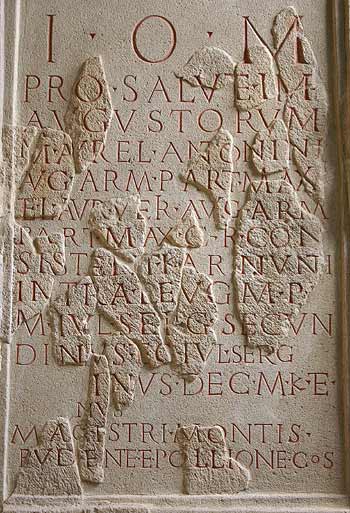 I · O · M
PRO · SALVE IM
AVGVSTORVM
M · AVREL · ANTONINI
AVG ARM · PART · MAX
ET L AVR VER · AVG ARM
PART MAX C · R · CON
SISTENT
INTRA LEVG · M · P
M · IVL SERG SECVN
DINVS IVL · SERG
INVS · DEC · M · K · E
NVS
MAGISTRI · MONTIS ·
PVDENTE E POLLIONE COS